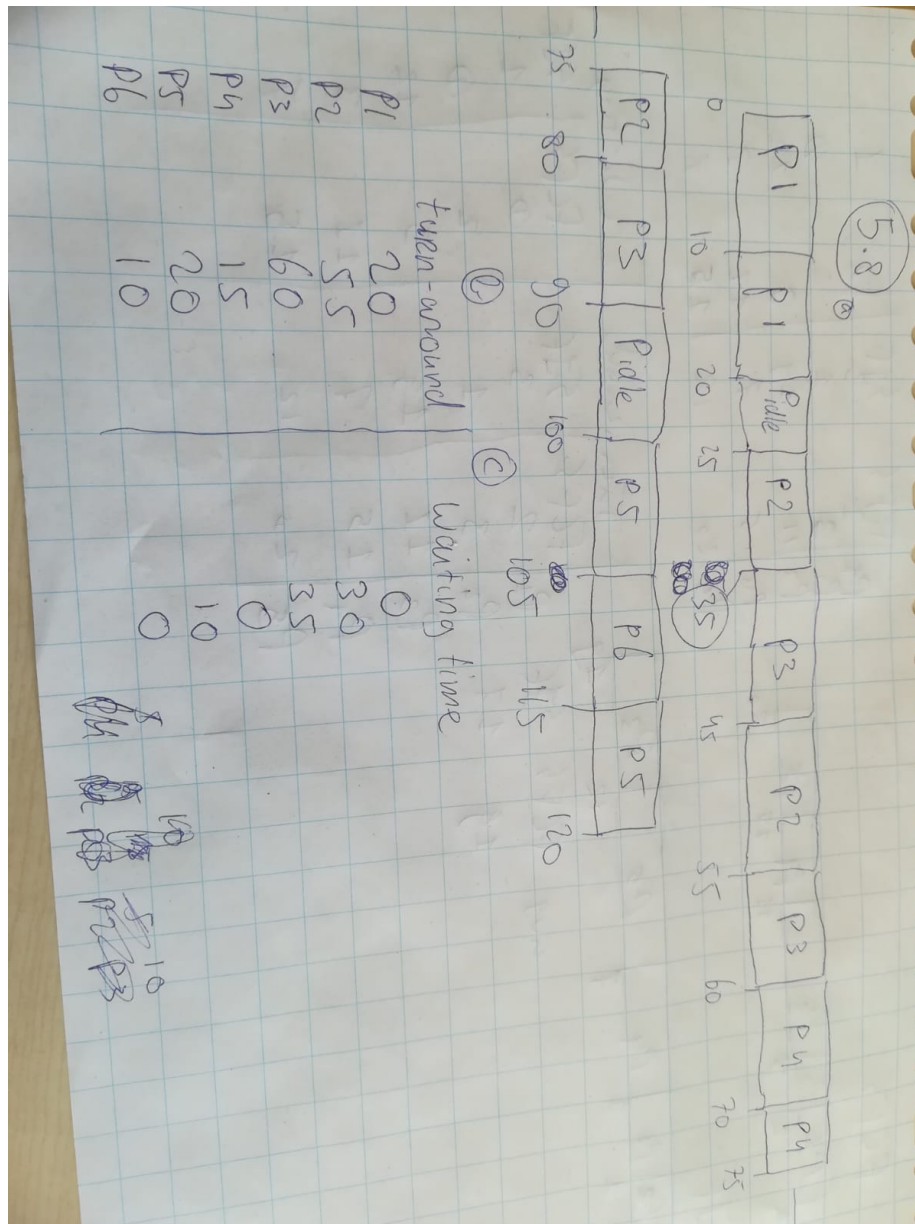 5.8
a
P1 P1 Pidle P2 P3 P2 P3 P4 P4
0 10 20 25 35 45 55 60 70 75
P2 P3 Pidle P5 P6 P5
75 80 90 100 105 115 120
b c
turn-around Waiting time
P1 20 0
P2 55 30
P3 60 35
P4 15 0
P5 20 10
P6 10 0
10
P4
P2 P3
10